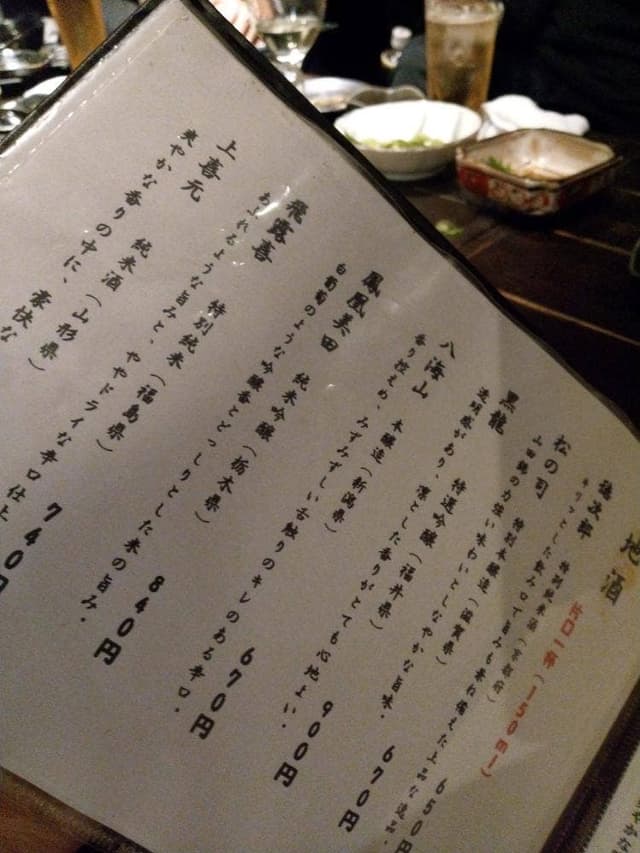 地酒
片口一杯(150ml)
穂次郎 特別純米酒(京都府)
キリッとした飲み口で旨みも兼ね備えた上品な逸品。
松の司 特別本醸造(滋賀県) 650円
山田錦の力強い味わいとしなやかな旨味。
黒龍 特選吟醸(福井県) 670円
透明感があり、凛とした香りがとても心地よい。
八海山 本醸造(新潟県) 900円
香り控えめ、みずみずしい舌触りのキレのある辛口。
鳳凰美田 純米吟醸(栃木県) 670円
白葡萄のような吟醸香とどっしりとした米の旨み。
飛露喜 特別純米(福島県) 840円
あふれるような旨みと、ややドライな辛口仕上
上喜元 純米酒(山形県) 740円
爽やかな香りの中に、豪快な